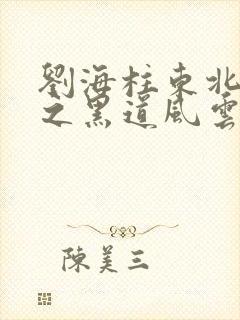 劉海柱東北
之黑道風雲
陳美三